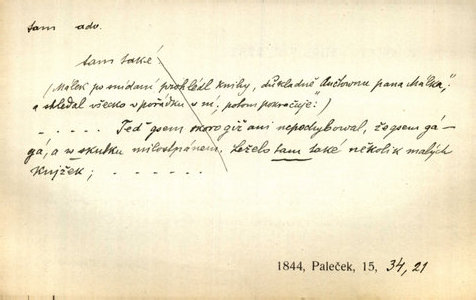 tam adv.
tam také
(Málek po snídaní prohlédl knihy, důkladně pana Málka,"
a shledal všecko v pořádku v ní, potom pokračuje:)
. . . . . Teď gsem skoro giž ani nepochyboval, že gsem gá –
gá, a w skutku milostpánem. Leželo tam také několik malých
knjžek; . . . . . .
1844, Paleček, 15, 34, 21